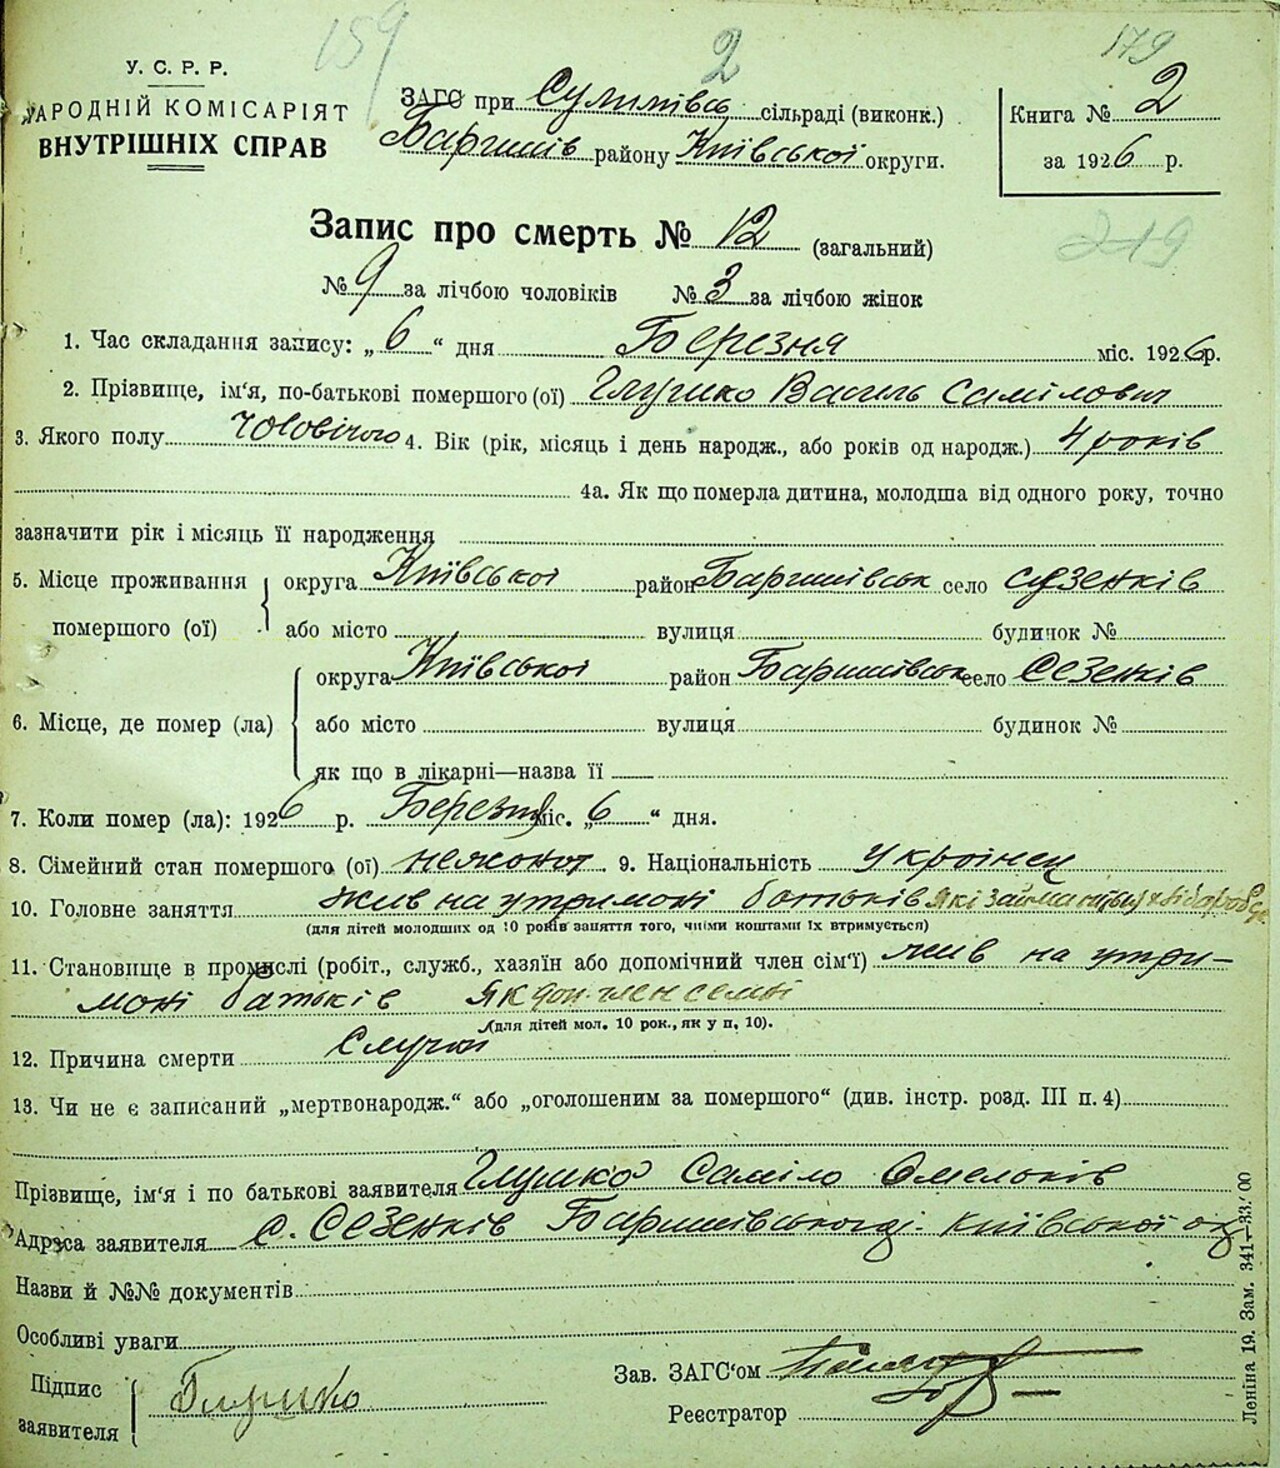 159
2
179
У. С. Р. Р.
НАРОДНІЙ КОМІСАРІЯТ
ВНУТРІШНІХ СПРАВ
ЗАГС при Сулимівсь сільраді (виконк.)
Баришів району Київської округи.
Книга № 2
за 1926 р.
Запис про смерть № 12 (загальний)
219
№ 9 за лічбою чоловіків № 3 за лічбою жінок
1. Час складання запису: „6“ дня Березня міс. 1926 р.
2. Прізвище, ім'я, по-батькові помершого (ої) Глушко Василь Самілович
3. Якого полу Чоловічого 4. Вік (рік, місяць і день народж., або років од народж.) 4 років
4а. Як що померла дитина, молодша від одного року, точно
зазначити рік і місяць її народження
5. Місце проживання помершого (ої) округа Київської район Баришівськ село Сезенків
або місто вулиця будинок №
6. Місце, де помер (ла) округа Київської район Баришівськ село Сезенків
або місто вулиця будинок №
як що в лікарні—назва її
7. Коли помер (ла): 1926 р. Березня міс. „6“ дня.
8. Сімейний стан помершого (ої) нежонат. 9. Національність Українец
10. Головне заняття жив на утримані батьків які займались хліборобс
(для дітей молодших од 10 років заняття того, чиїми коштами їх втримується)
11. Становище в промислі (робіт., служб., хазяїн або допомічний член сім'ї) жив на утри-
мані батьків як доп. член семьі
(для дітей мол. 10 рок., як у п. 10).
12. Причина смерти Случай
13. Чи не є записаний „мертвонародж.“ або „оголошеним за помершого“ (див. інстр. розд. III п. 4)
Прізвище, ім'я і по батькові заявителя Глушко Саміло Омельків
Адреса заявителя с. Сезенків Баришівського Київської ок
Назви й №№ документів
Особливі уваги
Підпис заявителя Глушко
Зав. ЗАГС'ом
Реєстратор
Леніна 19. Зам. 341—33.